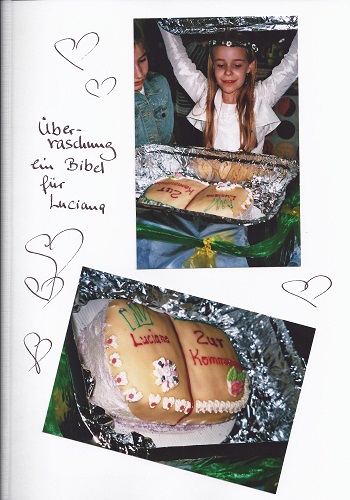 Über-
raschung
ein Bibel
für
Luciana
Zur
Luciana
Luciana
Zur
Kommun